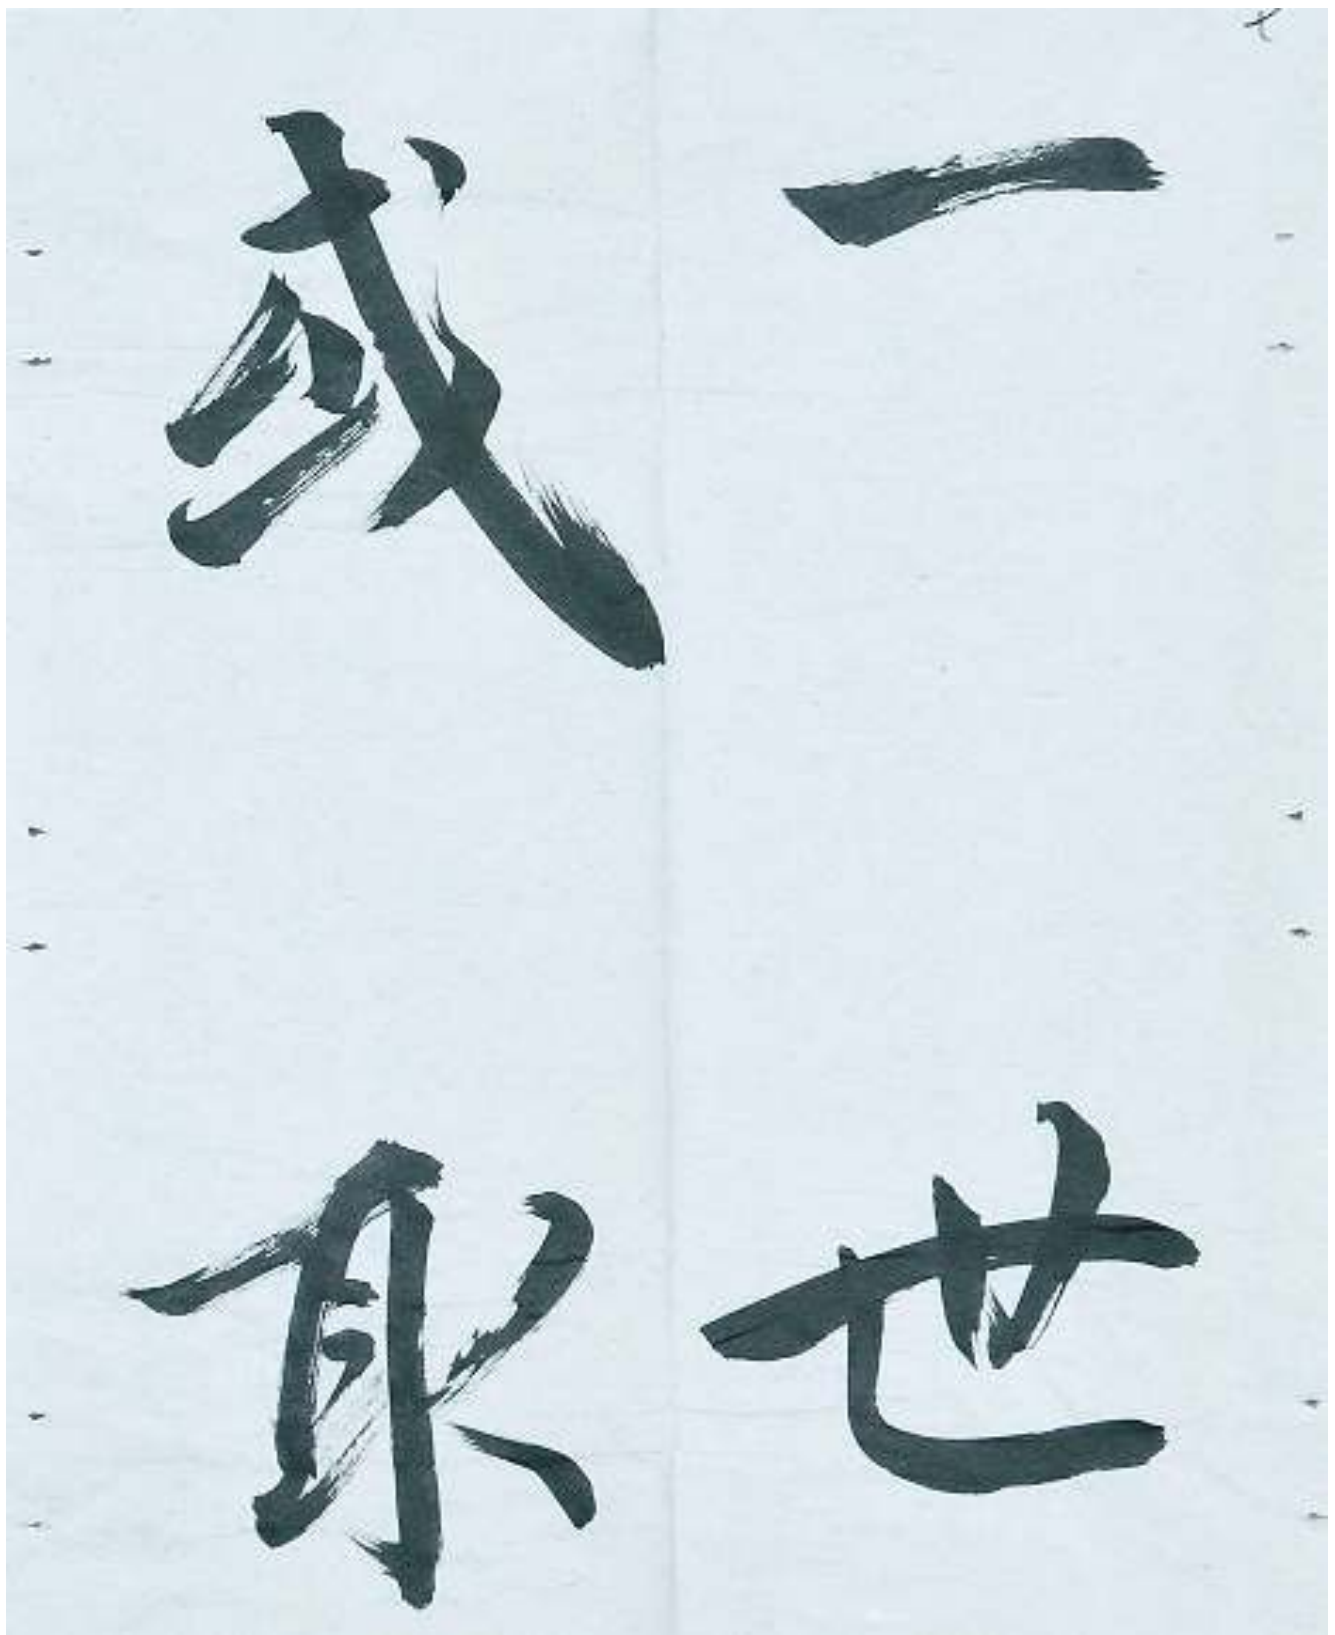 一世
或取